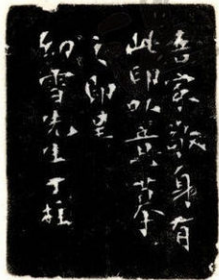 吾家藏身有
此印以其摹
之即呈
幼雪先生丁桂